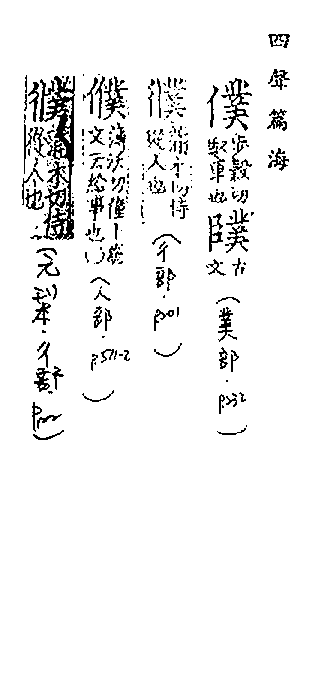 四聲篇海
僕步穀切馭車也䑑古文（菐部．p232）
蒲木切侍從人也（彳部．p301）
僕蒲沃切僮文云給事也（人部．p.511-2）
蒲木切侍從人也（元刊本．彳部．）